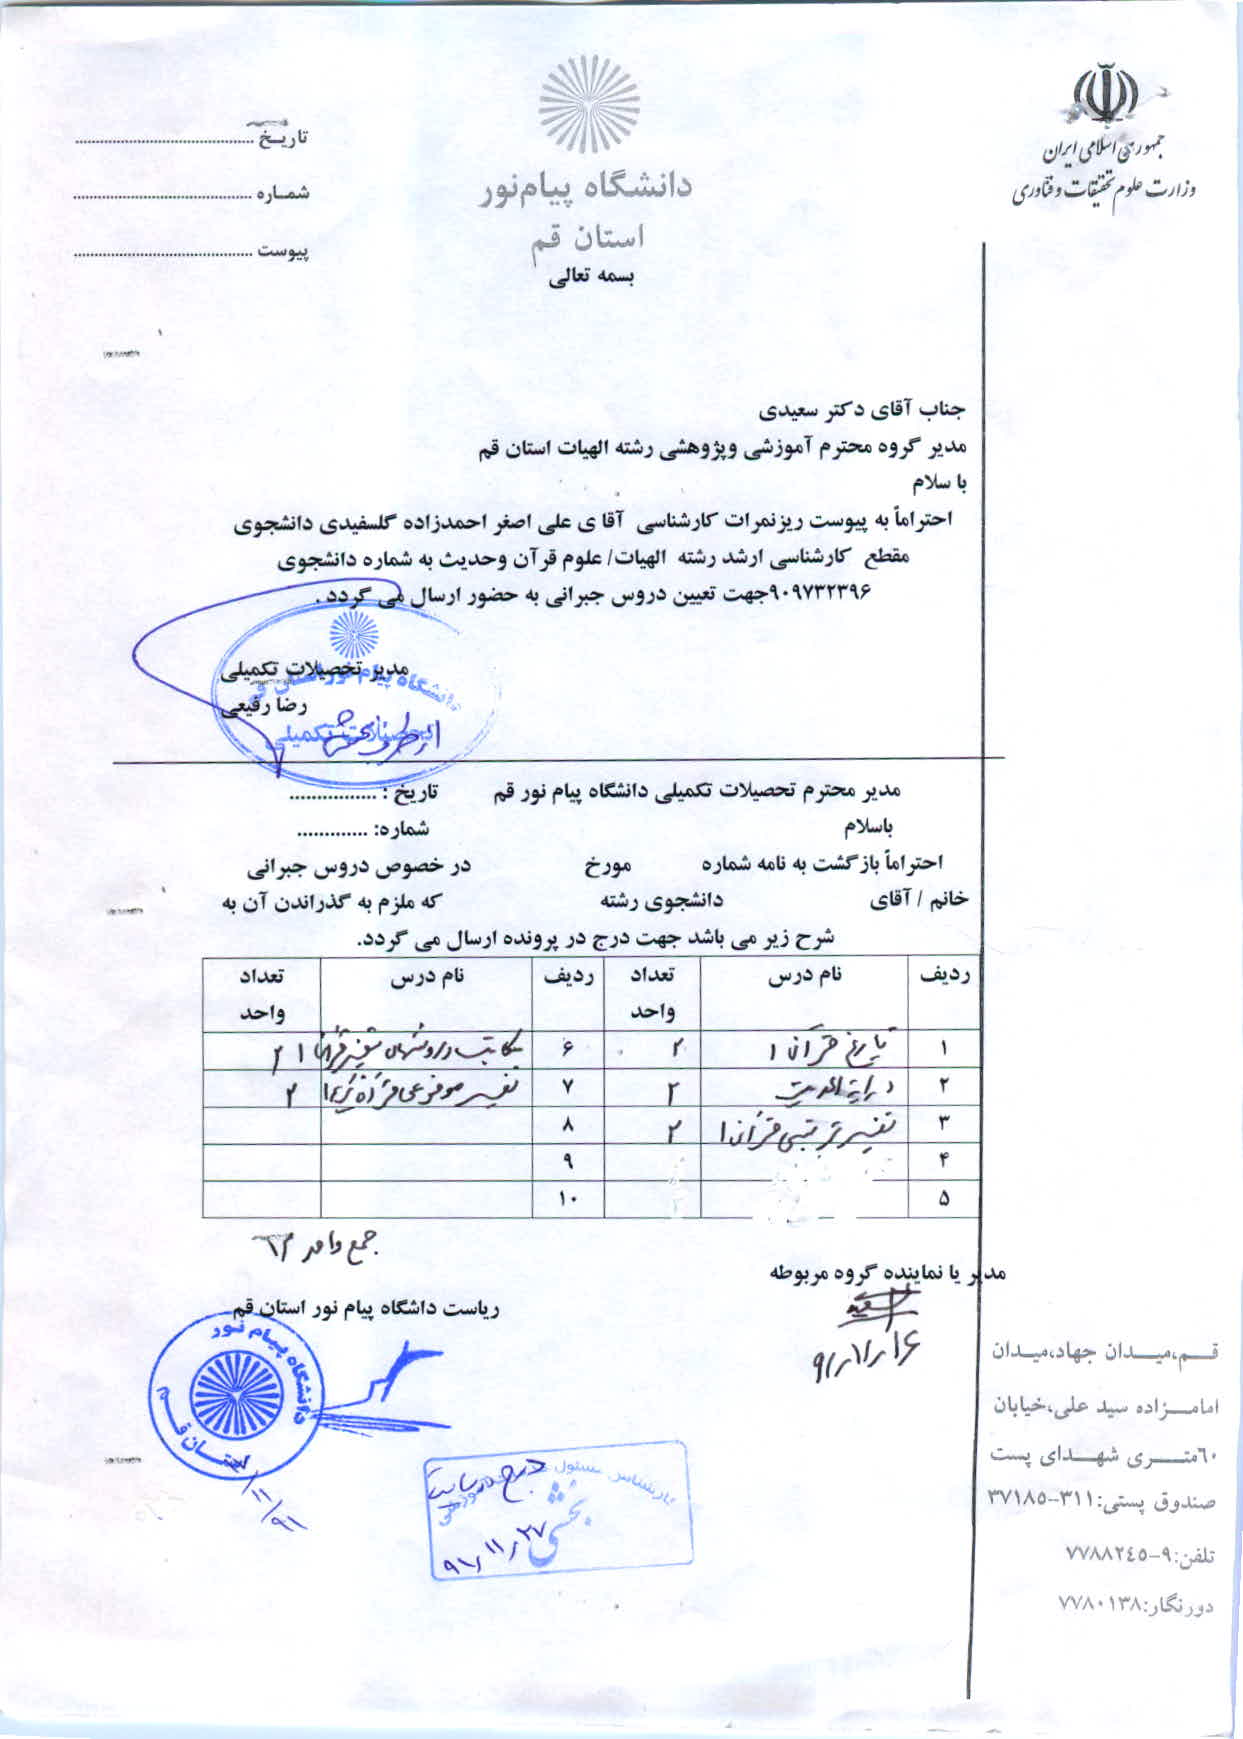 جمهوری اسلامی ایران
وزارت علوم تحقیقات و فناوری
دانشگاه پیام‌نور
استان قم
بسمه تعالی
تاریـخ ........................................
شمـاره ........................................
پیوست ........................................
جناب آقای دکتر سعیدی
مدیر گروه محترم آموزشی وپژوهشی رشته الهیات استان قم
با سلام
احتراماً به پیوست ریزنمرات کارشناسی آقا ی علی اصغر احمدزاده گلسفیدی دانشجوی
مقطع کارشناسی ارشد رشته الهیات/ علوم قرآن وحدیث به شماره دانشجوی
۹۰۹۷۳۲۳۹۶جهت تعیین دروس جبرانی به حضور ارسال می گردد .
مدیر تحصیلات تکمیلی
رضا رفیعی
از طرف
دانشگاه پیام نور استان قم
تحصیلات تکمیلی
مدیر محترم تحصیلات تکمیلی دانشگاه پیام نور قم تاریخ : ................
باسلام شماره: .............
احتراماً بازگشت به نامه شماره مورخ در خصوص دروس جبرانی
خانم / آقای دانشجوی رشته که ملزم به گذراندن آن به
شرح زیر می باشد جهت درج در پرونده ارسال می گردد.
ردیف نام درس تعداد واحد ردیف نام درس تعداد واحد
۱ تاریخ قرآن ۱ ۲ ۶ مکاتب و روشهای تفسیر قرآن ۱ ۲
۲ درایة الحدیث ۲ ۷ تفسیر موضوعی قرآن کریم ۱ ۲
۳ تفسیر ترتیبی قرآن ۱ ۲ ۸
۴ ۹
۵ ۱۰
جمع واحد
مدیر یا نماینده گروه مربوطه
۹۱/۱۱/۱۶
ریاست داشگاه پیام نور استان قم
دانشگاه پیام نور
استـان قـم
کارشناس مسئول
درج در سایت
بخشی
۹۱/۱۱/۲۷
قــم،میــدان جهاد،میـدان
امامــزاده سید علی،خیابان
٦٠متــری شهــدای پست
صندوق پستی:۳۱۱-۳۷۱۸۵
تلفن:۹-۷۷۸۸۲٤۵
دورنگار:۷۷۸۰۱۳۸